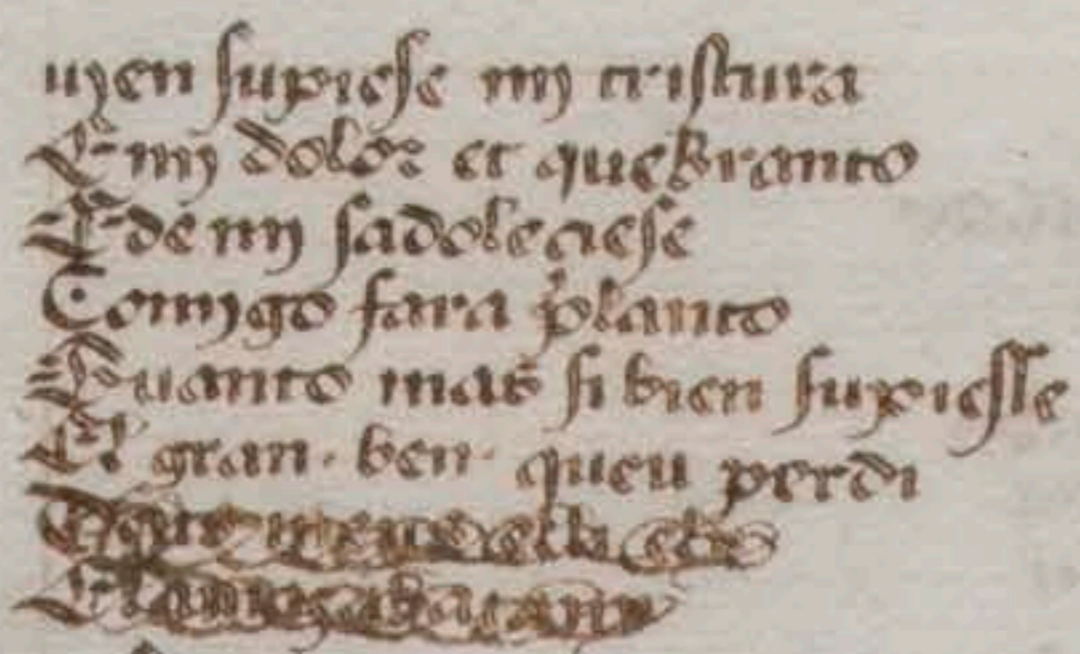 uyen supiese my tristura
E my dolor et quebranto
E de my sadoleciese
Comygo fara planto
Quanto mas si bien supiesse
El gran ben queu perdi